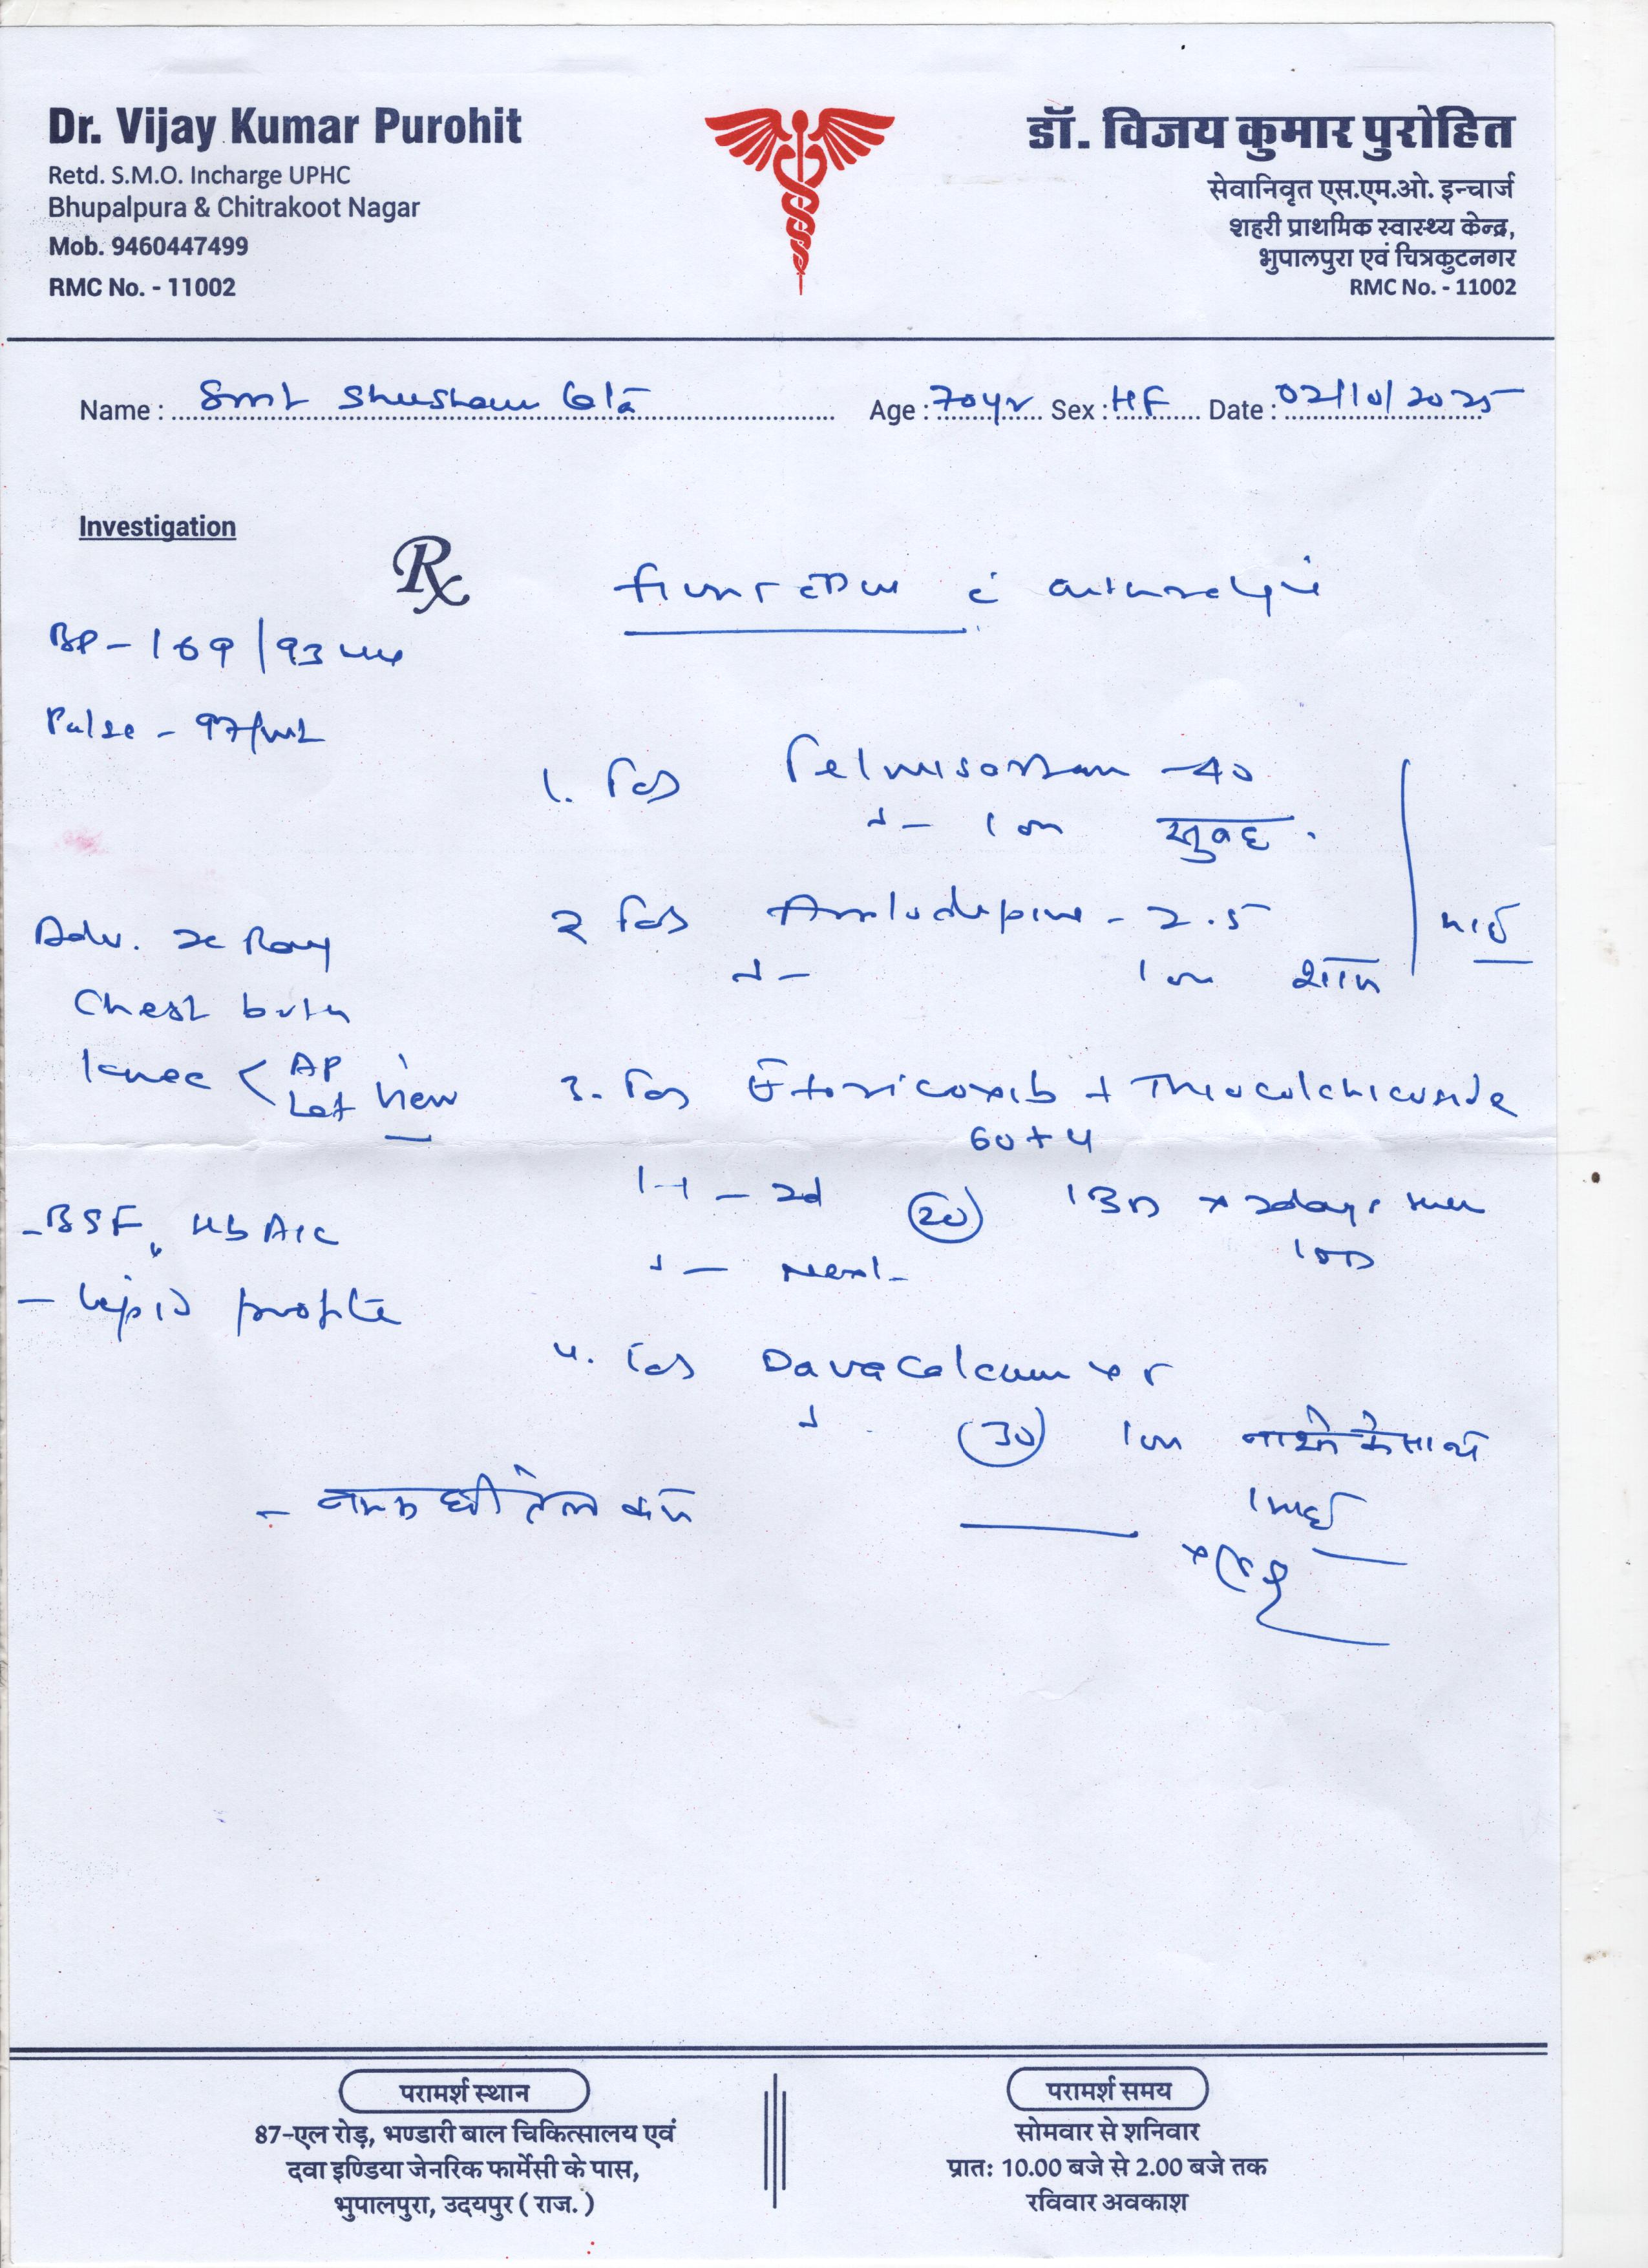 Dr. Vijay Kumar Purohit
Retd. S.M.O. Incharge UPHC
Bhupalpura & Chitrakoot Nagar
Mob. 9460447499
RMC No. - 11002
डॉ. विजय कुमार पुरोहित
सेवानिवृत एस.एम.ओ. इन्चार्ज
शहरी प्राथमिक स्वास्थ्य केन्द्र,
भुपालपुरा एवं चित्रकुटनगर
RMC No. - 11002
Name : Smt Age : 70yr Sex : HF Date : 02/10/2025
Investigation
Rx
BP - 169/93
Pulse - 97/mt
1. Tab Telmisartan - 40
1 OD सुबह
Adv. x Ray
Chest both
knee < AP
Lat View
2 Tab Amlodepine - 2.5
1 OD शाम
3. Tab Etoricoxib + Thiocolchicoside
60+4
1-1 - 2d (20) 1 BD x 2days
1 OD
- next -
- BSF, HbA1c
- Lipid profile
4. Tab Davacalcum
(30) 1 OD नाश्ते के साथ
- नमक घी तेल कम
परामर्श स्थान
87-एल रोड़, भण्डारी बाल चिकित्सालय एवं
दवा इण्डिया जेनरिक फार्मेसी के पास,
भुपालपुरा, उदयपुर ( राज. )
परामर्श समय
सोमवार से शनिवार
प्रातः 10.00 बजे से 2.00 बजे तक
रविवार अवकाश